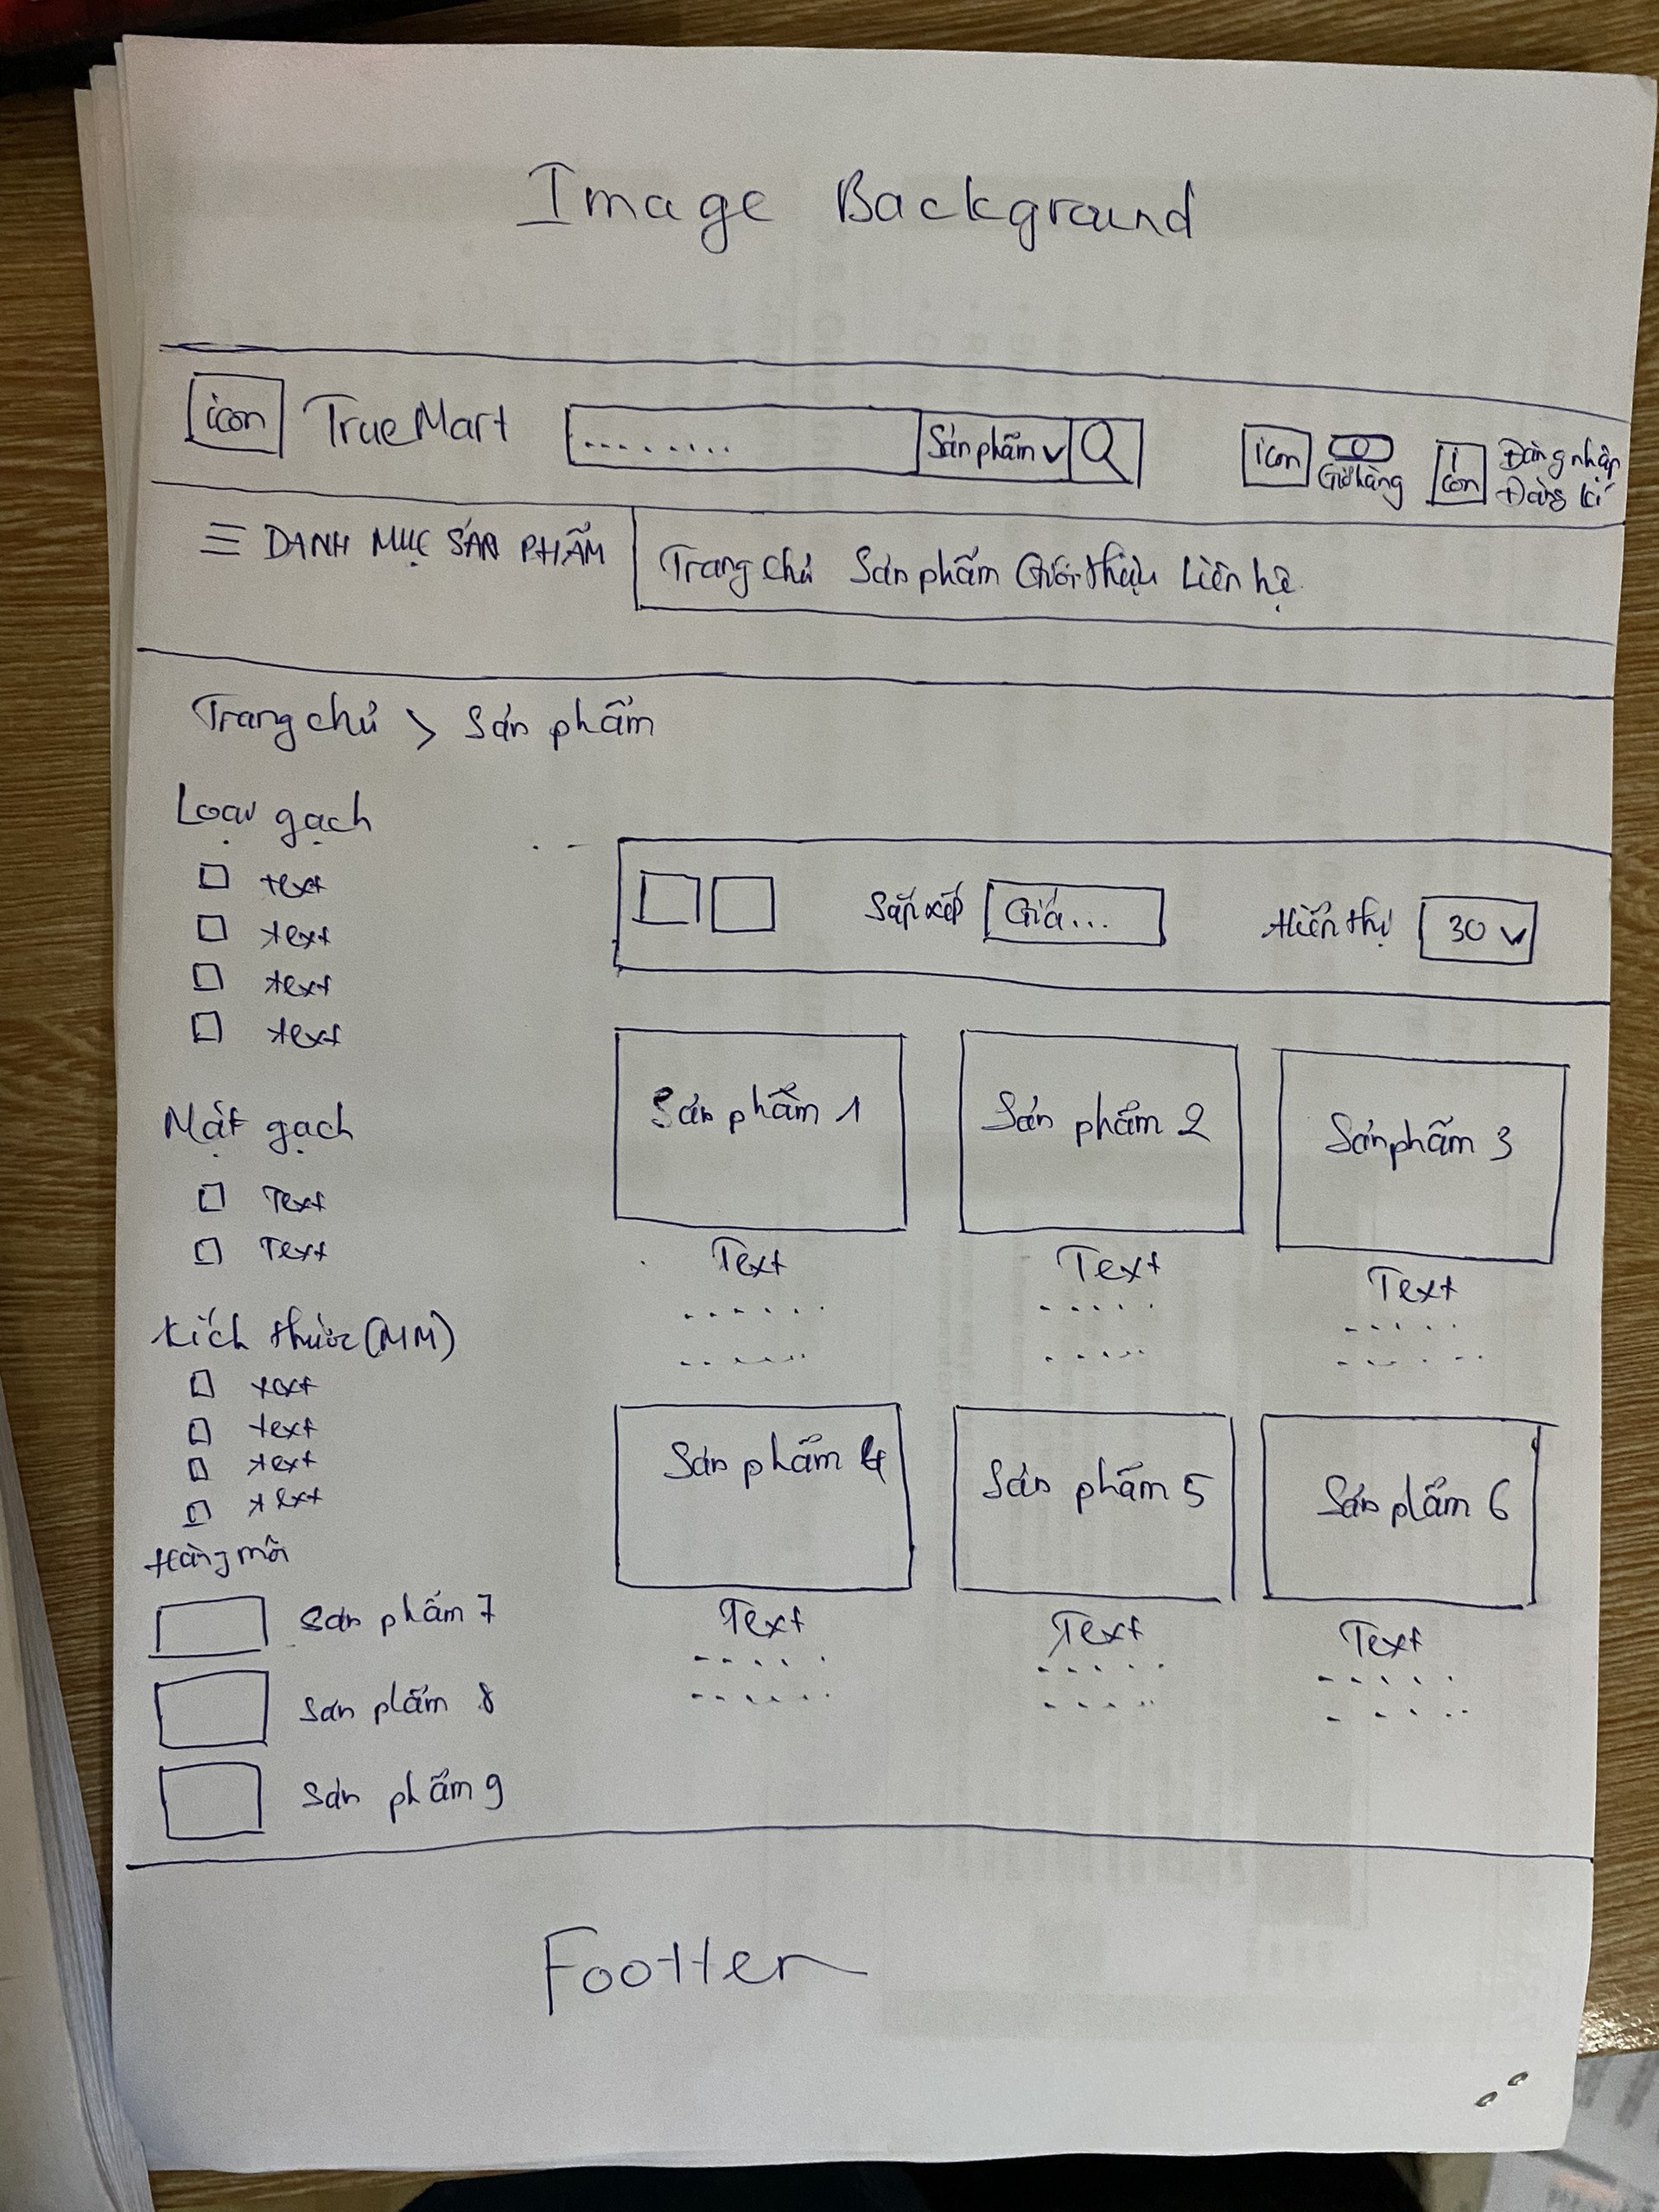 Image Background
icon TrueMart ........ Sản phẩm icon 0 Giỏ hàng icon Đăng nhập
Đăng kí
DANH MỤC SẢN PHẨM Trang chủ Sản phẩm Giới thiệu Liên hệ
Trang chủ > Sản phẩm
Loại gạch
text
text
text
text
Sắp xếp Giá... Hiển thị 30
Mặt gạch
Text
Text
Kích thước (MM)
text
text
text
text
Hàng mới
Sản phẩm 7
Sản phẩm 8
Sản phẩm 9
Sản phẩm 1 Sản phẩm 2 Sản phẩm 3
Text Text Text
Sản phẩm 4 Sản phẩm 5 Sản phẩm 6
Text Text Text
Footter